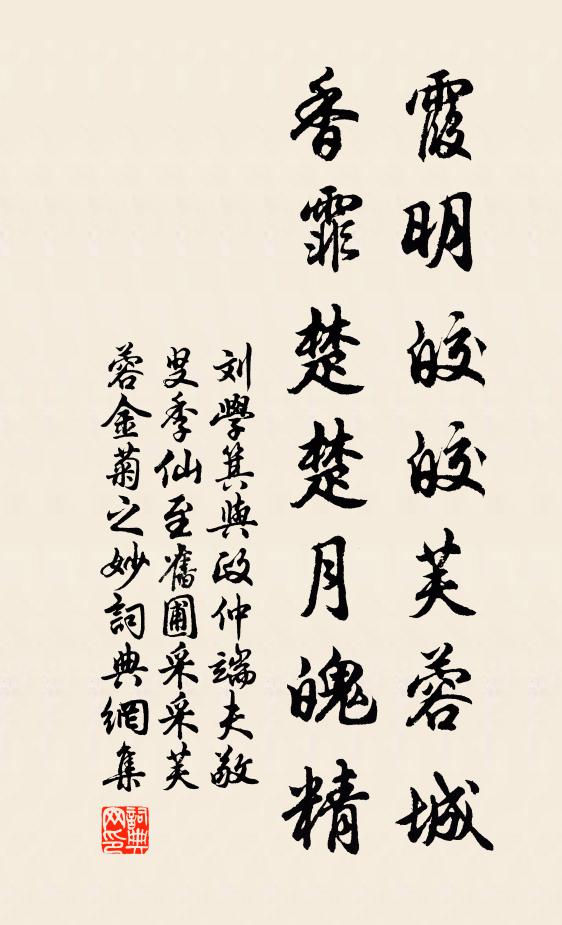 霞明皎皎芙蓉城
香霏楚楚月魄精
刘學箕與政仲端夫敬
叟季仙至舊圃采采芙
蓉金菊之妙詞典網集
詞典
网印